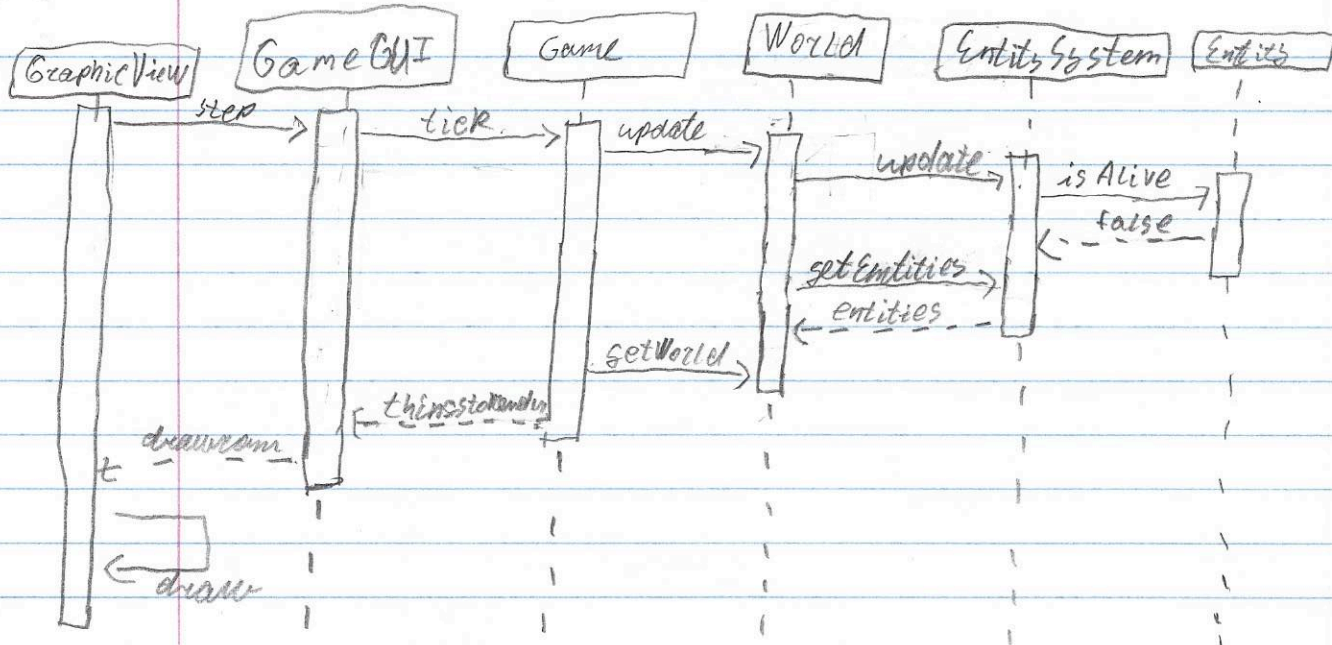 GraphicView
GameGUI
Game
World
EntitySystem
Entity
step
tick
update
update
isAlive
false
getEntities
entities
getWorld
draw